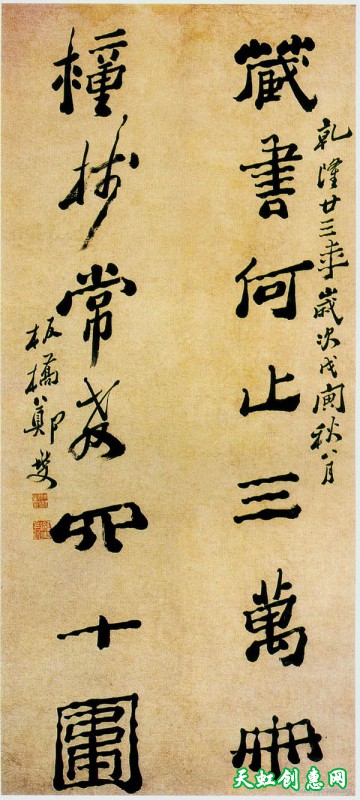 乾隆廿三年歲次戊寅秋八月
藏書何止三萬冊
種樹常教四十圍
板橋鄭燮
天虹创惠网